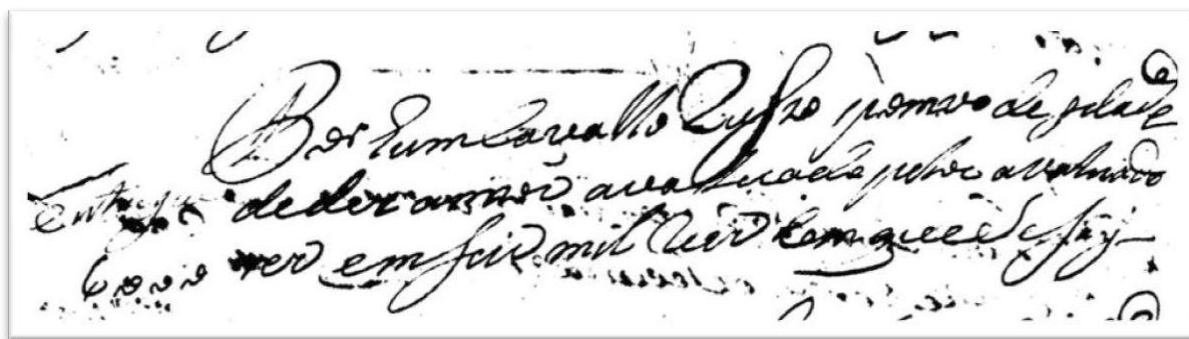 Por hum Cavallo Ruço pombo de idade
de des annos avaluado pelos avaluado
6000 res em seis mil Reis Com que se say